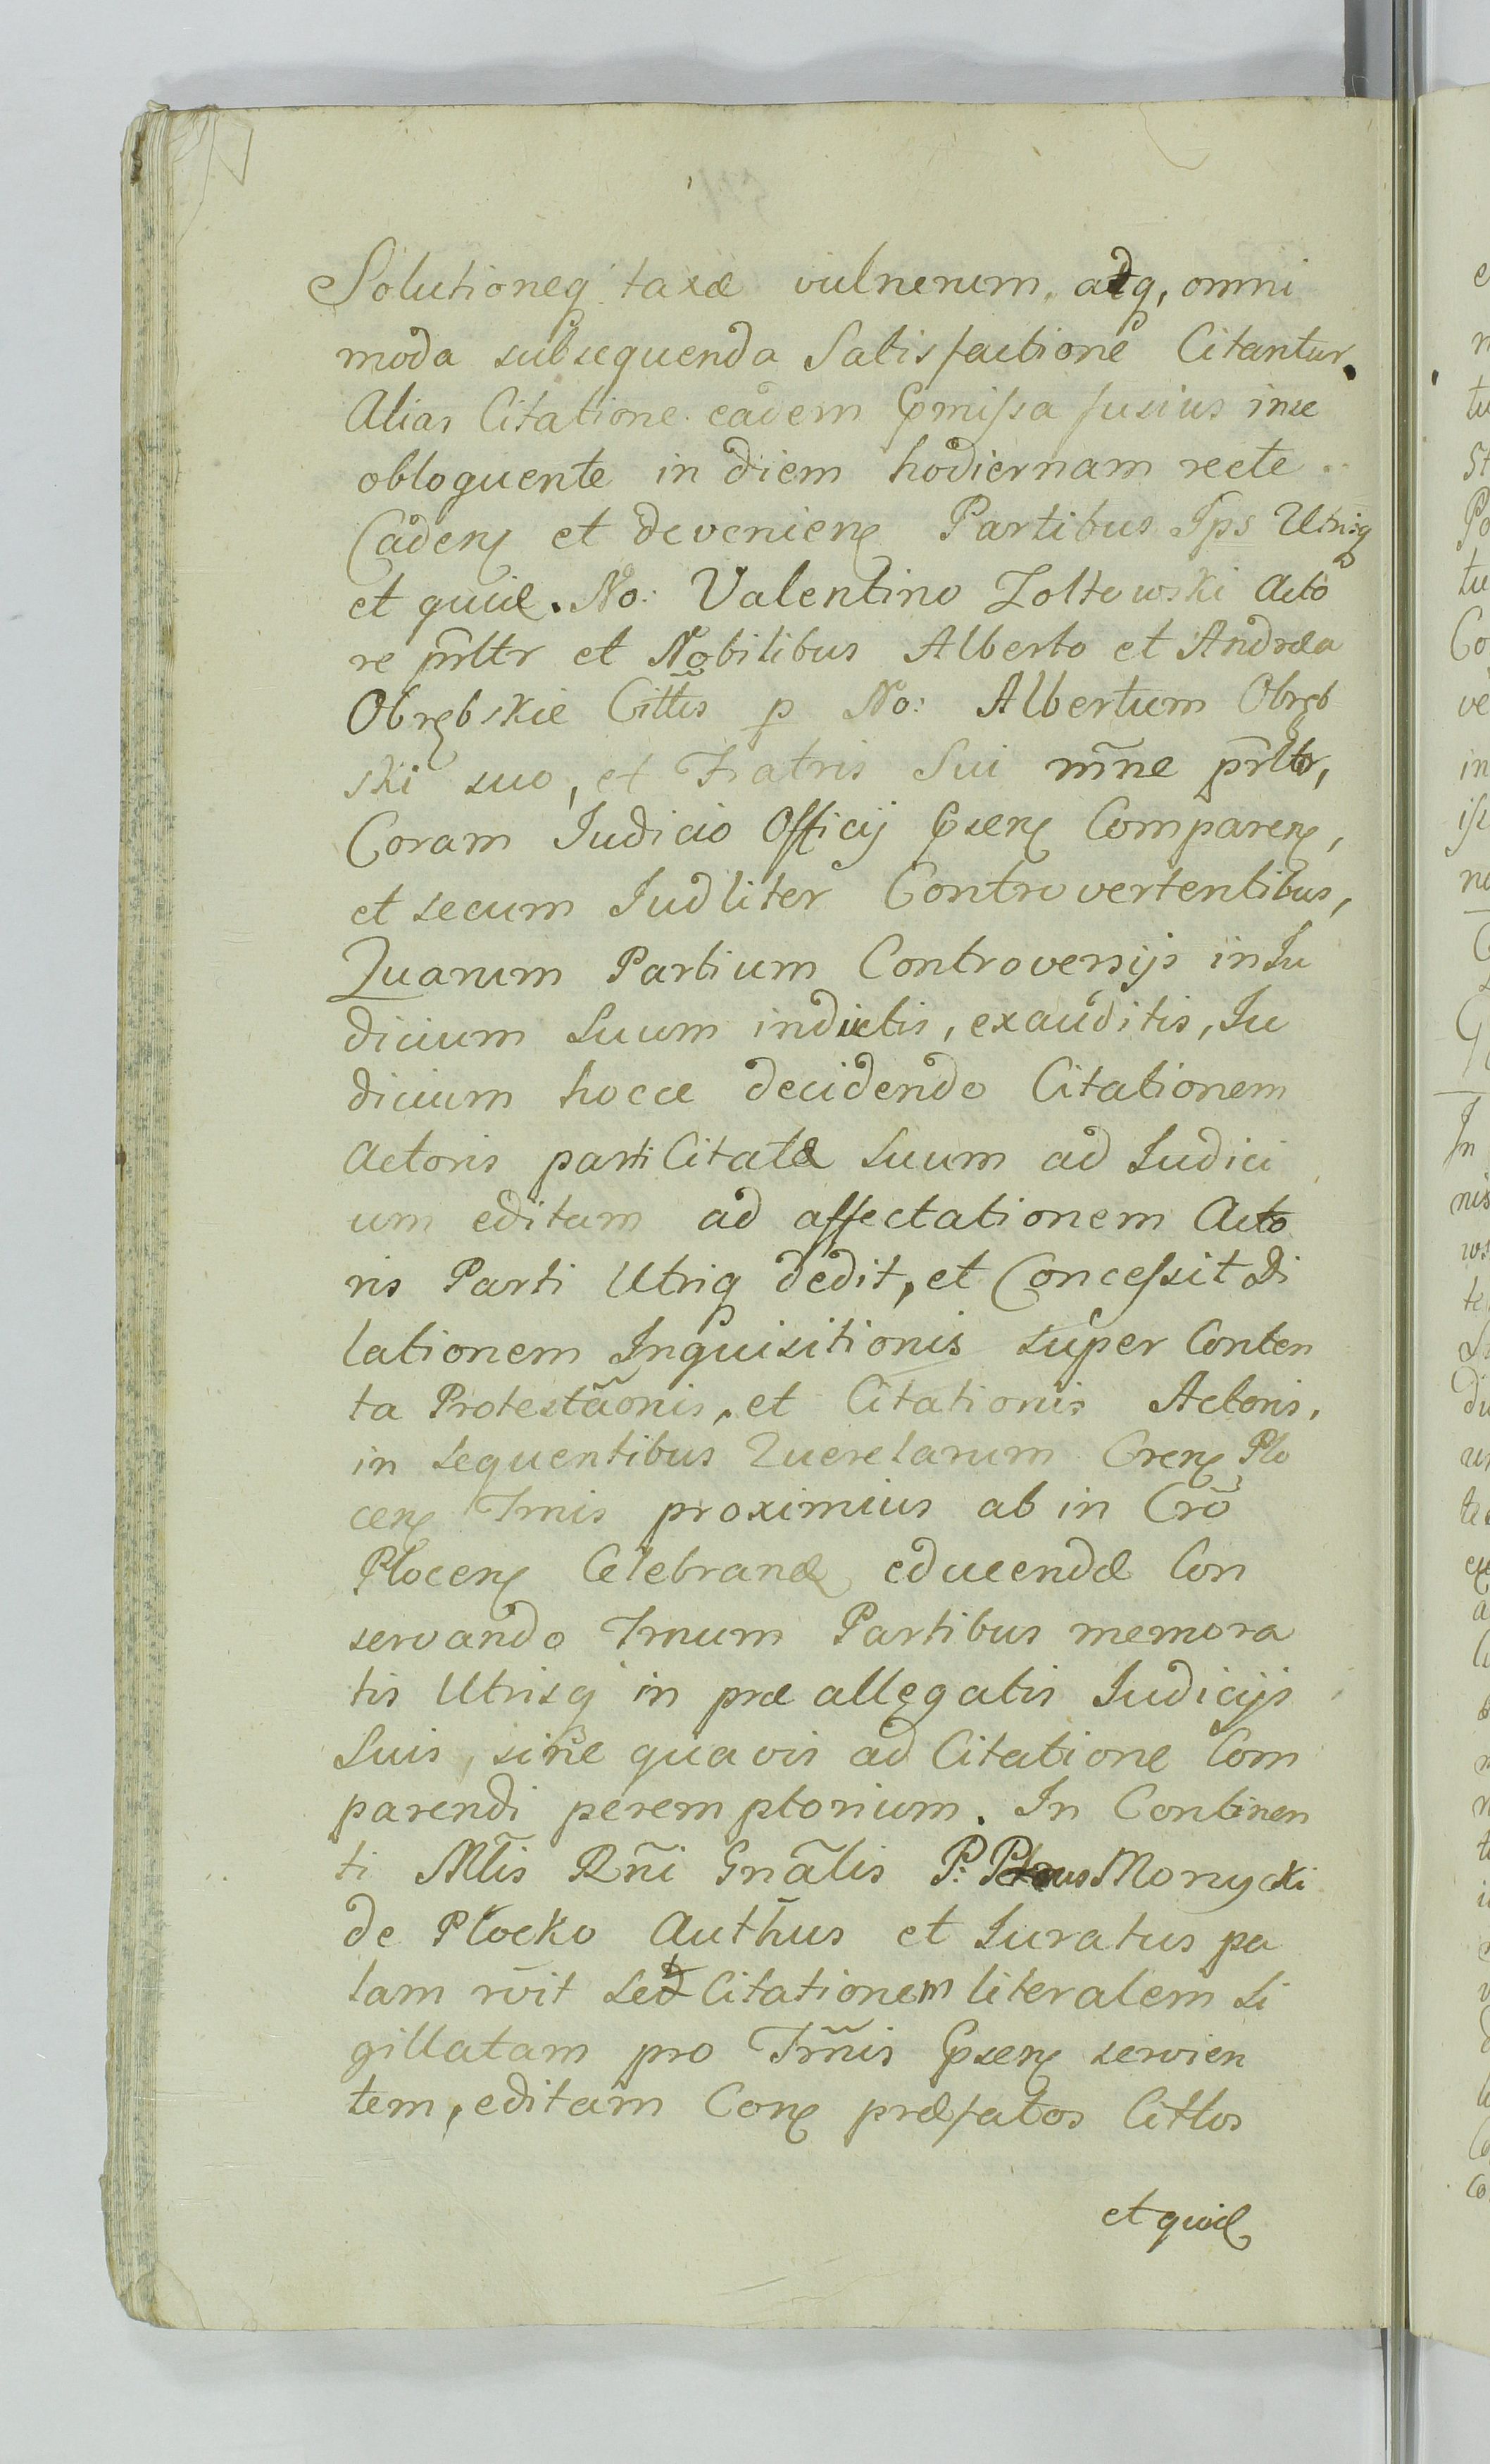 Solutioneq taxæ vulnerum, adq, omni
moda subsequenda Satisfactione Citantur.
Alias Citatione eadem præmissa fusius in se
obloquente in diem hodiernam recte
Caden et devenien Partibus Ips Utrisq
et quid. No: Valentino Zoltowski Acto
re prltr et Nobilibus Alberto et Andrea
Obrębskie Cittis p No: Albertum Obręb
ski suo, et Fratris Sui mne prltr,
Coram Iudicio Officij præsen Comparen,
et secum Iudliter Controvertentibus,
Quarum Partium Controversijs in Iu
dicium Suum indictis, exauditis, Iu
dicium hocce decidendo Citationem
Actoris parti Citatæ Suum ad Iudici
um editam ad affectationem Acto
ris Parti Utriq dedit, et Concessit Di
lationem Inquisitionis super Conten
ta Protestãonis, et Citationis Actoris,
in sequentibus Querelarum Cren Plo
cen Trnis proximius ab in Crõ
Plocen Celebrand educendæ Con
servando Trnum Partibus memora
tis Utrisq in præ allegatis Iudicijs
Suis, sine quavis ad Citatione Com
parendi peremptorium. In Continen
ti Mlis Rni Gnãlis P: Petrus Monycki
de Plocko Authus et Iuratus pa
lam rvit Sed Citationem literalem Si
gillatam pro Trnis præsen servien
tem, editam Con præfatos Cittos
et quid